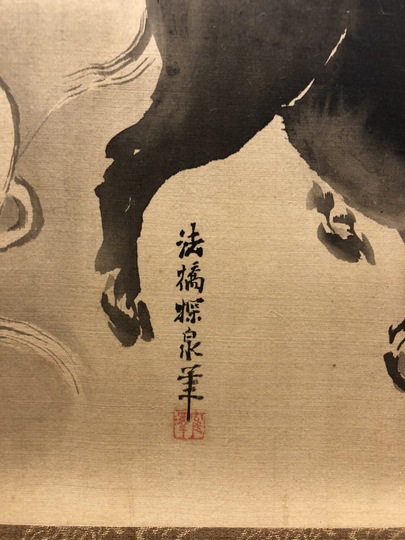 法橋探泉筆